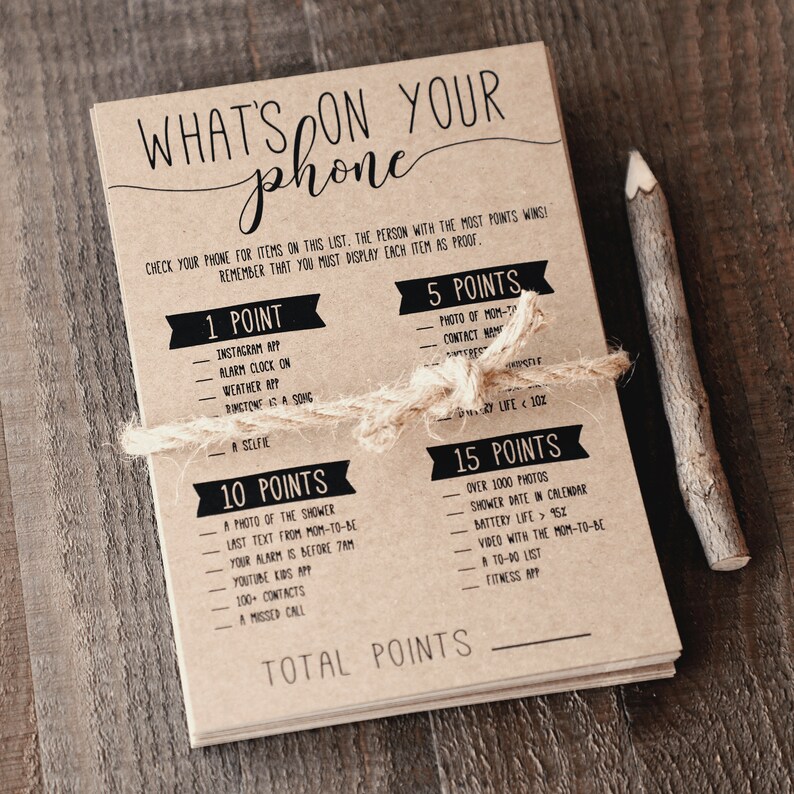 WHAT'S ON YOUR
phone
CHECK YOUR PHONE FOR ITEMS ON THIS LIST. THE PERSON WITH THE MOST POINTS WINS!
REMEMBER THAT YOU MUST DISPLAY EACH ITEM AS PROOF.
1 POINT
INSTAGRAM APP
ALARM CLOCK ON
WEATHER APP
RINGTONE IS A SONG
A SELFIE
5 POINTS
PHOTO OF
CONTACT
BATTERY LIFE < 10%
10 POINTS
A PHOTO OF THE SHOWER
LAST TEXT FROM MOM-TO-BE
YOUR ALARM IS BEFORE 7AM
YOUTUBE KIDS APP
100+ CONTACTS
A MISSED CALL
15 POINTS
OVER 1000 PHOTOS
SHOWER DATE IN CALENDAR
BATTERY LIFE > 95%
VIDEO WITH THE MOM-TO-BE
A TO-DO LIST
FITNESS APP
TOTAL POINTS